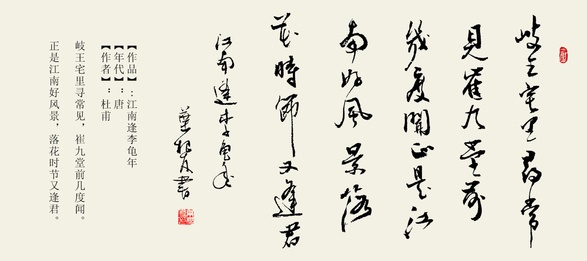 岐王宅里尋常
見崔九堂前
幾度聞正是江
南好風景落
花時節又逢君
江南逢李龜年
書
【作品】:江南逢李龟年
【年代】:唐
【作者】:杜甫
岐王宅里寻常见,崔九堂前几度闻。
正是江南好风景,落花时节又逢君。